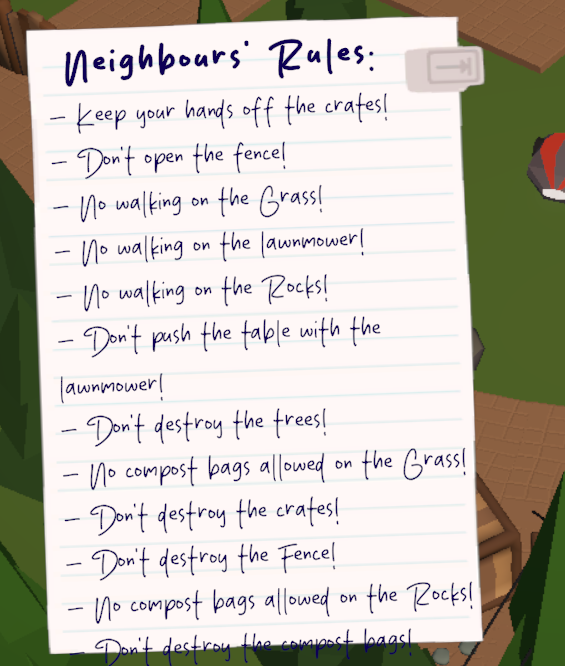 Neighbours' Rules:
- Keep your hands off the crates!
- Don't open the fence!
- No walking on the Grass!
- No walking on the lawnmower!
- No walking on the Rocks!
- Don't push the table with the
lawnmower!
- Don't destroy the trees!
- No compost bags allowed on the Grass!
- Don't destroy the crates!
- Don't destroy the Fence!
- No compost bags allowed on the Rocks!
- Don't destroy the compost bags!